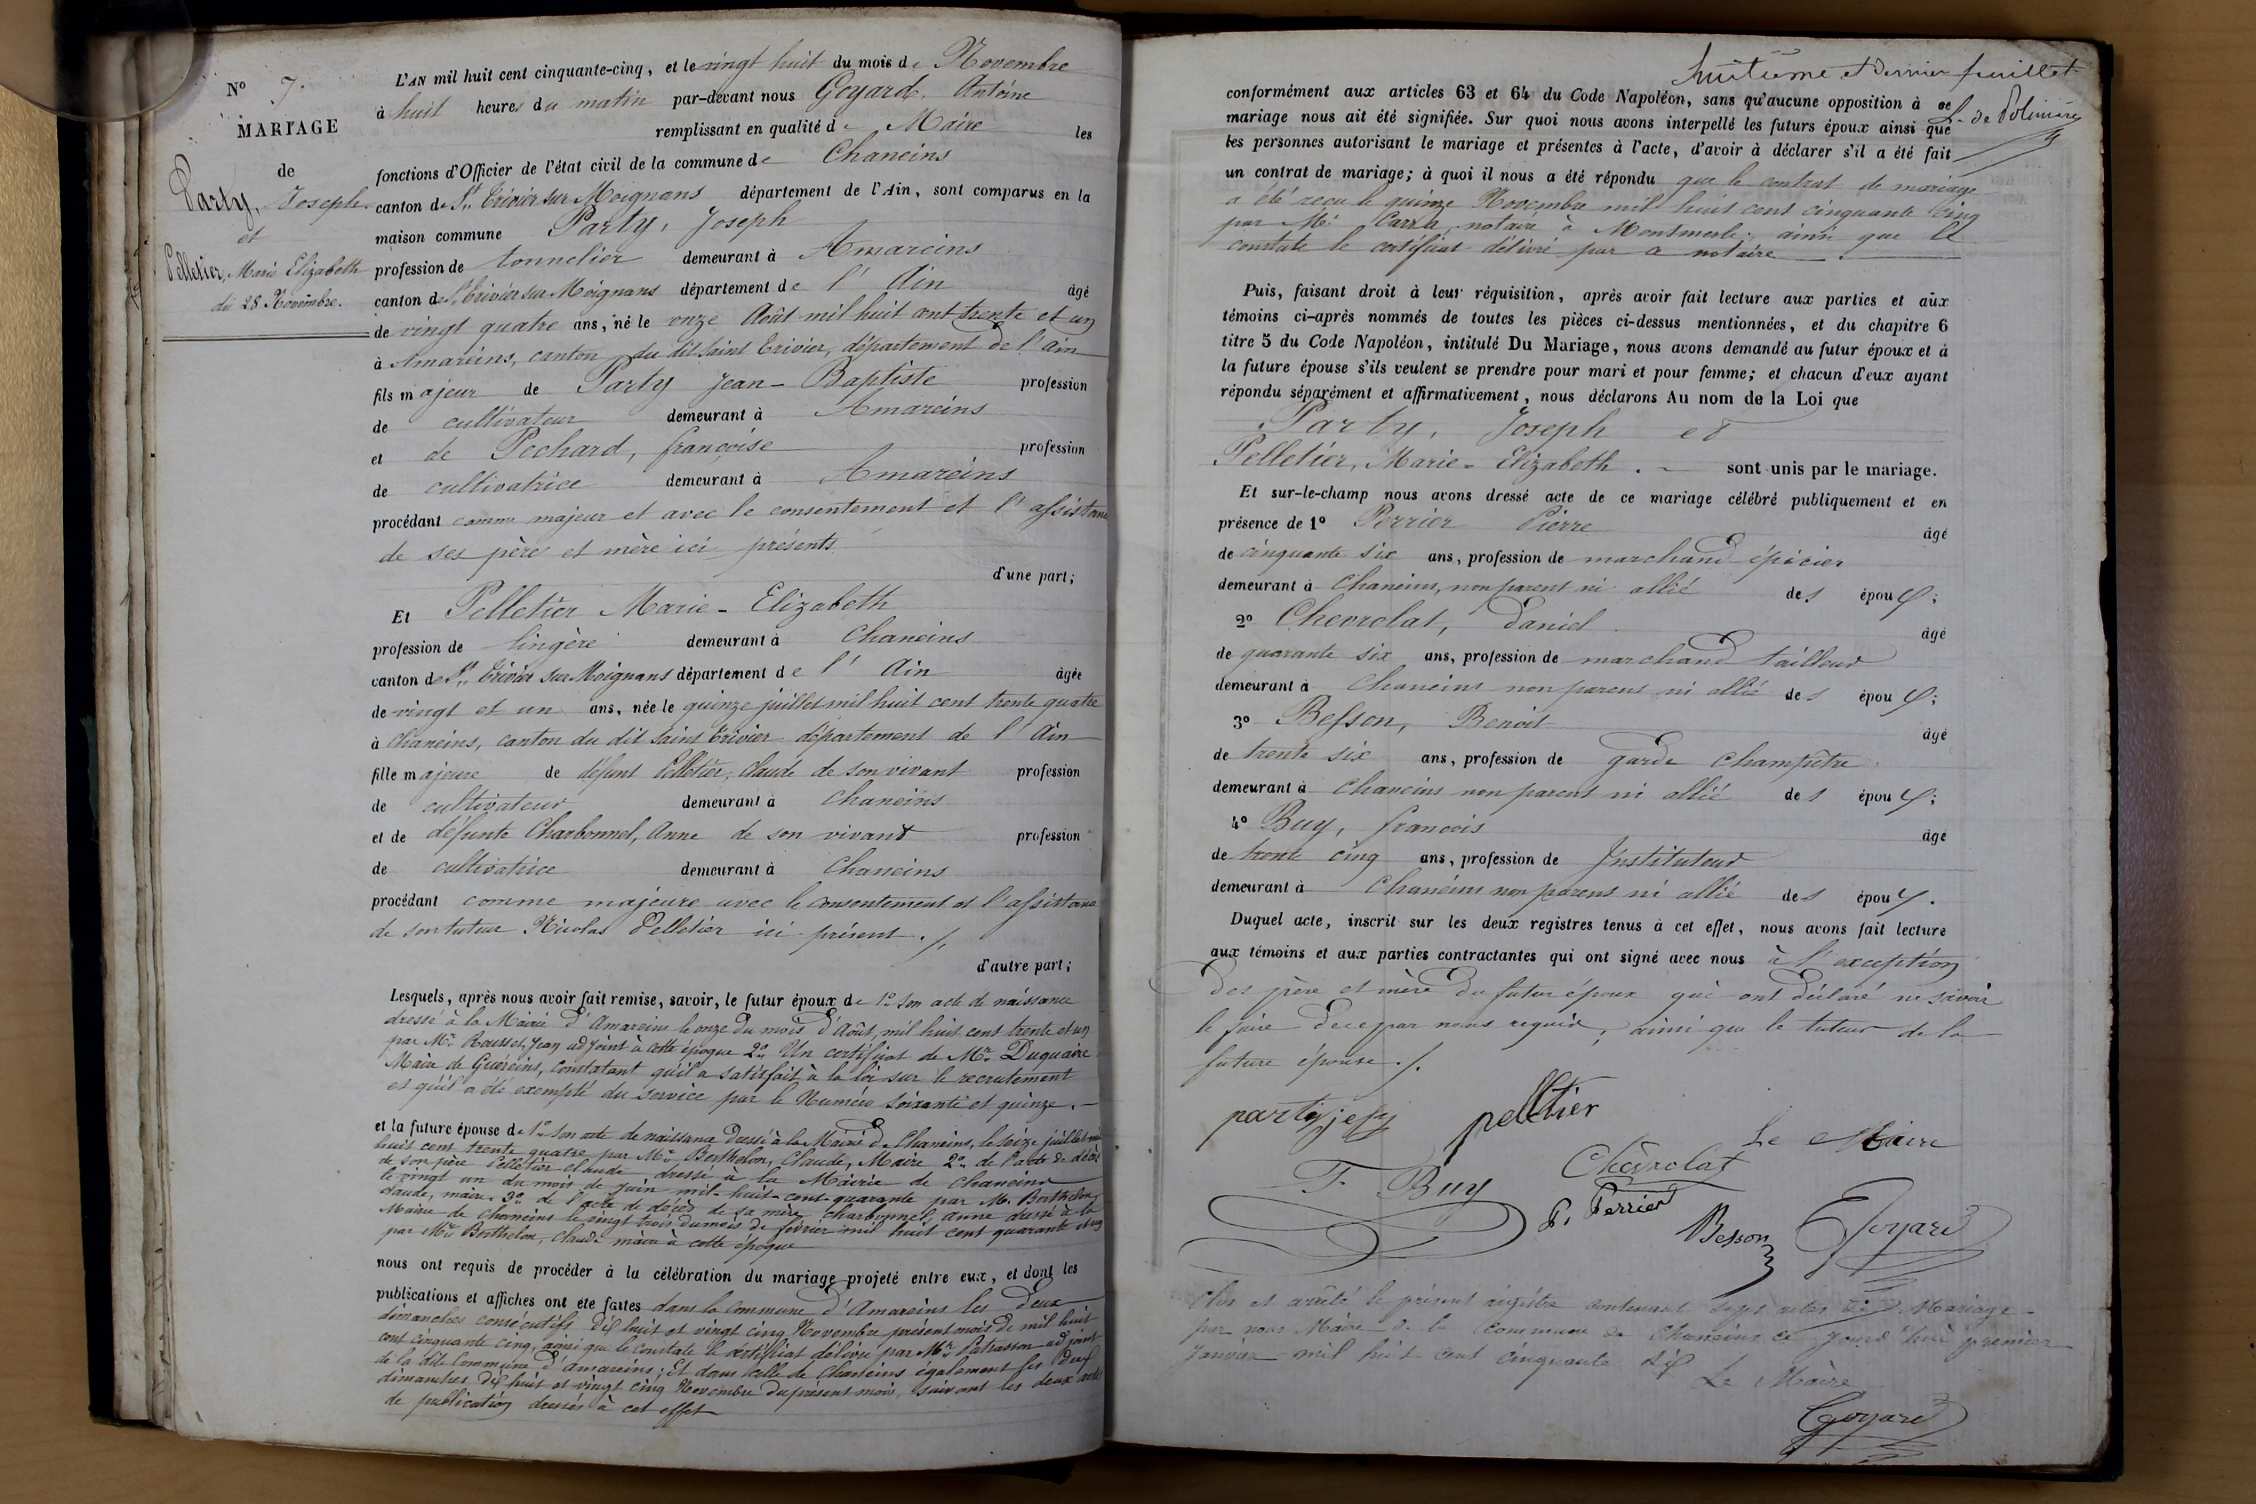 Nº 7.
MARIAGE
de
Party, Joseph.
et
Pelletier, Marie Elizabeth
du 28 Novembre.
L'AN mil huit cent cinquante-cinq, et le vingt huit du mois de Novembre
à huit heures du matin par-devant nous Goyard, Antoine
remplissant en qualité de Maire les
fonctions d'Officier de l'état civil de la commune de Chaneins
canton de St. Trivier sur Moignans département de l'Ain, sont comparus en la
maison commune Party, Joseph
profession de tonnelier demeurant à Amareins
canton de St. Trivier sur Moignans département de l' Ain âgé
de vingt quatre ans, né le onze Août mil huit cent trente et un
à Amareins, canton du dit Saint Trivier, département de l'ain
fils majeur de Party Jean-Baptiste profession
de cultivateur demeurant à Amareins
et de Pechard, françoise profession
de cultivatrice demeurant à Amareins
procédant comme majeur et avec le consentement et l'assistance
de ses père et mère ici présents
d'une part;
Et Pelletier Marie-Elizabeth
profession de lingère demeurant à Chaneins
canton de St. Trivier sur Moignans département de l' Ain âgée
de vingt et un ans, née le quinze juillet mil huit cent trente quatre
à Chaneins, canton du dit Saint Trivier département de l'Ain
fille majeure de défunt Pelletier, Claude de son vivant profession
de cultivateur demeurant à Chaneins
et de défunte Charbonnel, Anne de son vivant profession
de cultivatrice demeurant à Chaneins
procédant comme majeure avec le consentement et l'assistance
de son tuteur Nicolas Pelletier ici présent ./.
d'autre part;
Lesquels, après nous avoir fait remise, savoir, le futur époux de 1º son acte de naissance
dressé à la Mairie d'Amareins le onze du mois d'Août mil huit cent trente et un
par Mr. Rousset, Jean adjoint à cette époque 2º Un certificat de Mr. Duquaire
Maire de Guéreins, constatant qu'il a satisfait à la loi sur le recrutement
et qu'il a été exempté du service par le Numéro soixante et quinze. —
et la future épouse de 1º son acte de naissance dressé à la Mairie de Chaneins, le seize juillet mil
huit cent trente quatre par Mr. Berthelon, Claude, Maire 2º de l'acte de décès
de son père Pelletier Claude dressé à la Mairie de Chaneins
le vingt un du mois de juin mil-huit-cent-quarante par Mr. Berthelon,
claude, maire. 3º de l'acte de décès de sa mère Charbonnel anne dressé à la
Mairie de Chaneins le vingt trois du mois de février mil huit cent quarante et un
par Mr. Berthelon, Claude maire à cette époque
nous ont requis de procéder à la célébration du mariage projeté entre eux, et dont les
publications et affiches ont été faites dans la commune d'Amareins les deux
dimanches consécutifs dix huit et vingt cinq Novembre présent mois de mil huit
cent cinquante cinq, ainsi que le constate le certificat délivré par Mr. Patrasson adjoint
de la dite Commune d'amareins; Et dans celle de Chaneins également les deux
dimanches dix huit et vingt cinq Novembre du présent mois, suivant les deux actes
de publication dressés à cet effet
huitième et dernier feuillet
conformément aux articles 63 et 64 du Code Napoléon, sans qu'aucune opposition à ce
mariage nous ait été signifiée. Sur quoi nous avons interpellé les futurs époux ainsi que
les personnes autorisant le mariage et présentes à l'acte, d'avoir à déclarer s'il a été fait
un contrat de mariage; à quoi il nous a été répondu que le contrat de mariage
a été reçu le quinze Novembre mil huit cent cinquante cinq
par Me. Carra, notaire à Montmerle, ainsi que le
constate le certificat délivré par ce notaire
Puis, faisant droit à leur réquisition, après avoir fait lecture aux parties et aux
témoins ci-après nommés de toutes les pièces ci-dessus mentionnées, et du chapitre 6
titre 5 du Code Napoléon, intitulé Du Mariage, nous avons demandé au futur époux et à
la future épouse s'ils veulent se prendre pour mari et pour femme; et chacun d'eux ayant
répondu séparément et affirmativement, nous déclarons Au nom de la Loi que
Party, Joseph et
Pelletier, Marie-Elizabeth. - sont unis par le mariage.
Et sur-le-champ nous avons dressé acte de ce mariage célébré publiquement et en
présence de 1º Perrier Pierre âgé
de cinquante six ans, profession de marchand épicier
demeurant à Chaneins, non parent ni allié des époux;
2º Chevrolat, Daniel âgé
de quarante six ans, profession de marchand tailleur
demeurant à Chaneins non parent ni allié des époux;
3º Besson, Benoit âgé
de trente six ans, profession de garde champêtre
demeurant à Chaneins non parent ni allié des époux;
4º Buy, françois âgé
de trente cinq ans, profession de Instituteur
demeurant à Chaneins non parent ni allié des époux.
Duquel acte, inscrit sur les deux registres tenus à cet effet, nous avons fait lecture
aux témoins et aux parties contractantes qui ont signé avec nous à l'exception
des père et mère du futur époux qui ont déclaré ne savoir
le faire de ce par nous requis, ainsi que le tuteur de la
future épouse ./.
party
pelletier
Le Maire
F. Buy
Chevrolat
P. Perrier
Besson
Goyard
Clos et arrêté le présent registre contenant sept actes de Mariage
par nous Maire de la Commune de Chaneins ce jourd'hui premier
Janvier mil huit cent cinquante six
Le Maire
Goyard